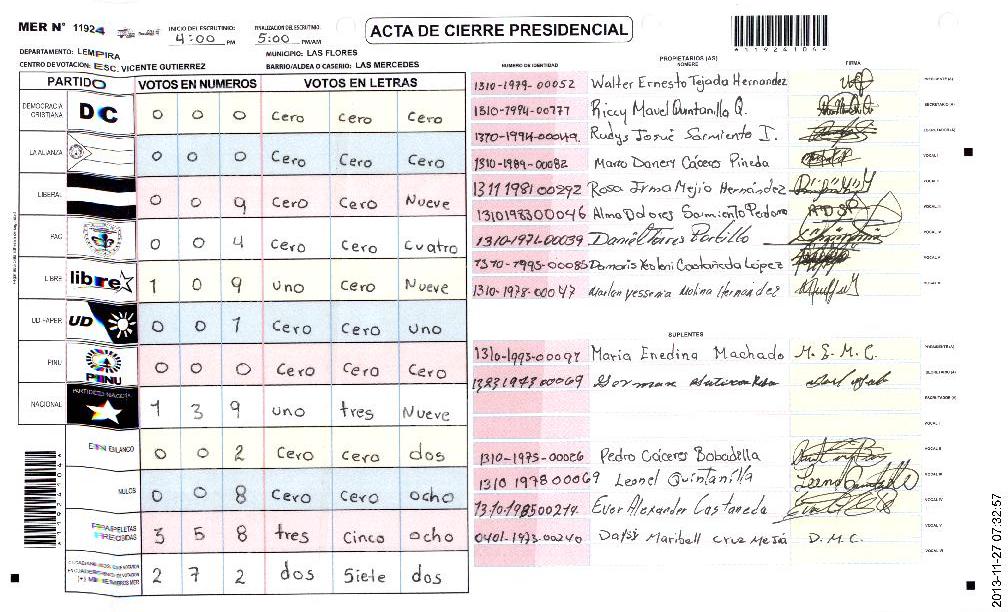 MER N° 11924
INICIO DEL ESCRUTINIO:
4:00 PM
FINALIZACION DEL ESCRUTINIO:
5:00 PM/AM
ACTA DE CIERRE PRESIDENCIAL
*11924106*
DEPARTAMENTO: LEMPIRA
MUNICIPIO: LAS FLORES
CENTRO DE VOTACION: ESC. VICENTE GUTIERREZ
BARRIO/ALDEA O CASERIO: LAS MERCEDES
PARTIDO VOTOS EN NUMEROS VOTOS EN LETRAS
DEMOCRACIA CRISTIANA DC 0 0 0 Cero Cero Cero
LA ALIANZA 0 0 0 Cero Cero Cero
LIBERAL 0 0 9 Cero Cero Nueve
PAC 0 0 4 Cero Cero Cuatro
LIBRE libre 1 0 9 uno Cero Nueve
UD-FAPER UD 0 0 1 Cero Cero uno
PINU PINU 0 0 0 Cero Cero Cero
NACIONAL 1 3 9 uno tres Nueve
EN BLANCO 0 0 2 Cero Cero dos
NULOS 0 0 8 Cero Cero ocho
3 5 8 tres Cinco ocho
2 7 2 dos Siete dos
PROPIETARIOS (AS)
NUMERO DE IDENTIDAD NOMBRE FIRMA
1310-1979-00052 Walter Ernesto Tejada Hernandez PRESIDENTE (A)
1310-1994-00777 Riccy Mavel Quintanilla Q. SECRETARIO (A)
1310-1994-00049 Rudys Josué Sarmiento I. ESCRUTADOR (A)
1310-1989-00082 Marro Danery Cáceres Pineda VOCAL I
1311 1981 00292 Rosa Irma Mejia Hernández VOCAL II
1310198300046 Alma Dolores Sarmiento Perdomo ADSP VOCAL III
1310-1971-00039 Daniel Torres Portillo VOCAL IV
1310-1995-00085 Damaris Xiolani Castañeda López VOCAL V
1310-1978-00047 Marlen yessenia Molina Hernández VOCAL VI
SUPLENTES
1310-1993-00097 Maria Enedina Machado M.E.M.C. PRESIDENTE (A)
1323197300069 German SECRETARIO (A)
ESCRUTADOR (A)
VOCAL I
1310-1975-00026 Pedro Cáceres Bobadilla VOCAL II
1310 1978 00069 Leonel Quintanilla VOCAL III
1310-198500214 Ever Alexander Castaneda VOCAL IV
0401-1973-00240 Daysi Maribell Cruz Mejia D.M.C. VOCAL V
VOCAL VI
2013-11-27 07:32:57